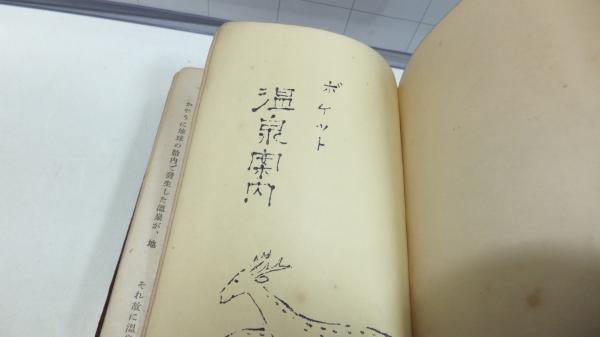 ポケット
温泉案内
かやうに地球の胎内で發生した温泉が、地
それ故に温